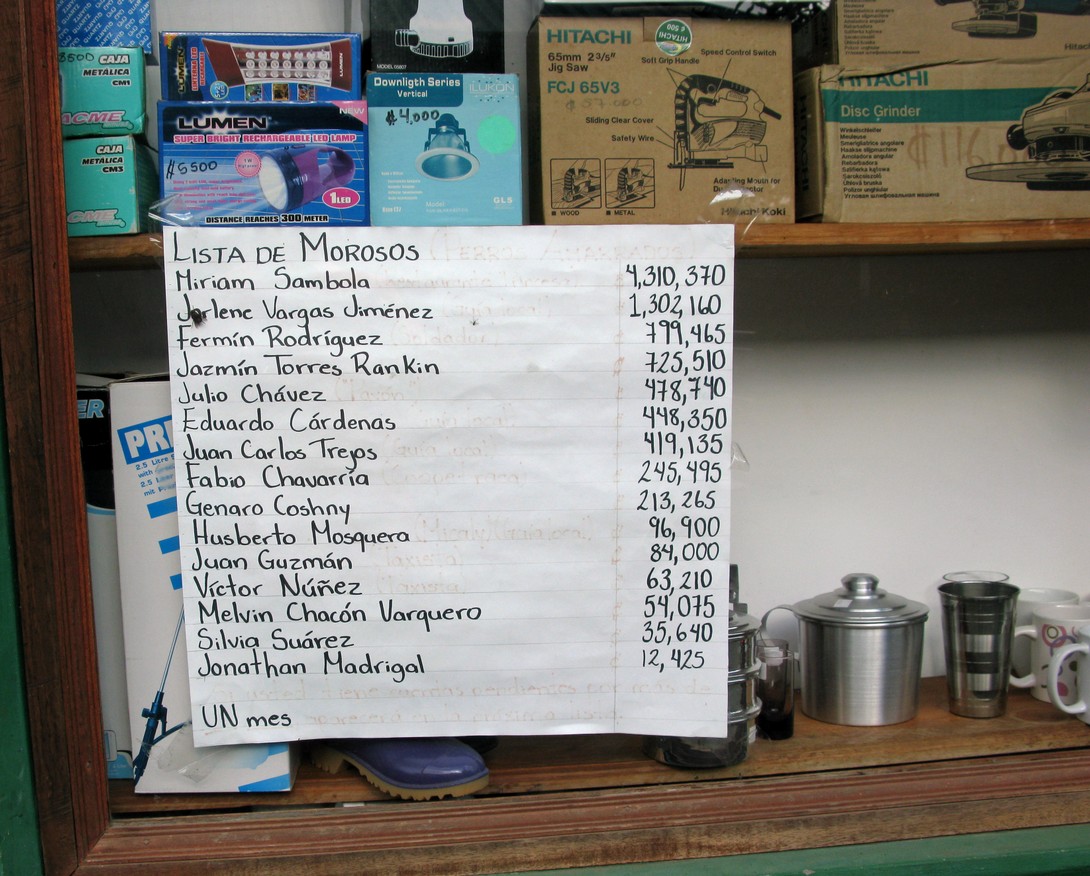 8500 CAJA
METÁLICA
CM1
ACME
CAJA
METÁLICA
CM3
ACME
LUMEN
LUMEN
NEW
LUMEN
SUPER BRIGHT RECHARGEABLE LED LAMP
₡5500
1LED
DISTANCE REACHES 300 METER
Downligth Series
Vertical
ILUKON
₡4,000
GLS
HITACHI
65mm 2 3/5"
Jig Saw
FCJ 65V3
₡57.000
HITACHI
Speed Control Switch
Soft Grip Handle
Sliding Clear Cover
Safety Wire
WOOD
METAL
Hitachi Koki
HITACHI
Disc Grinder
Winkelschleifer
Meuleuse
Haakse slijpmachine
Amoladora angular
Rebarbadora
LISTA DE MOROSOS
Miriam Sambola 4,310,370
Jorlene Vargas Jiménez 1,302,160
Fermín Rodríguez 799,465
Jazmín Torres Rankin 725,510
Julio Chávez 478,740
Eduardo Cárdenas 448,350
Juan Carlos Trejos 419,135
Fabio Chavarría 245,495
Genaro Coshny 213,265
Husberto Mosquera 96,900
Juan Guzmán 84,000
Víctor Núñez 63,210
Melvin Chacón Varquero 54,075
Silvia Suárez 35,640
Jonathan Madrigal 12,425
UN mes
ER
PR
2.5 Litre